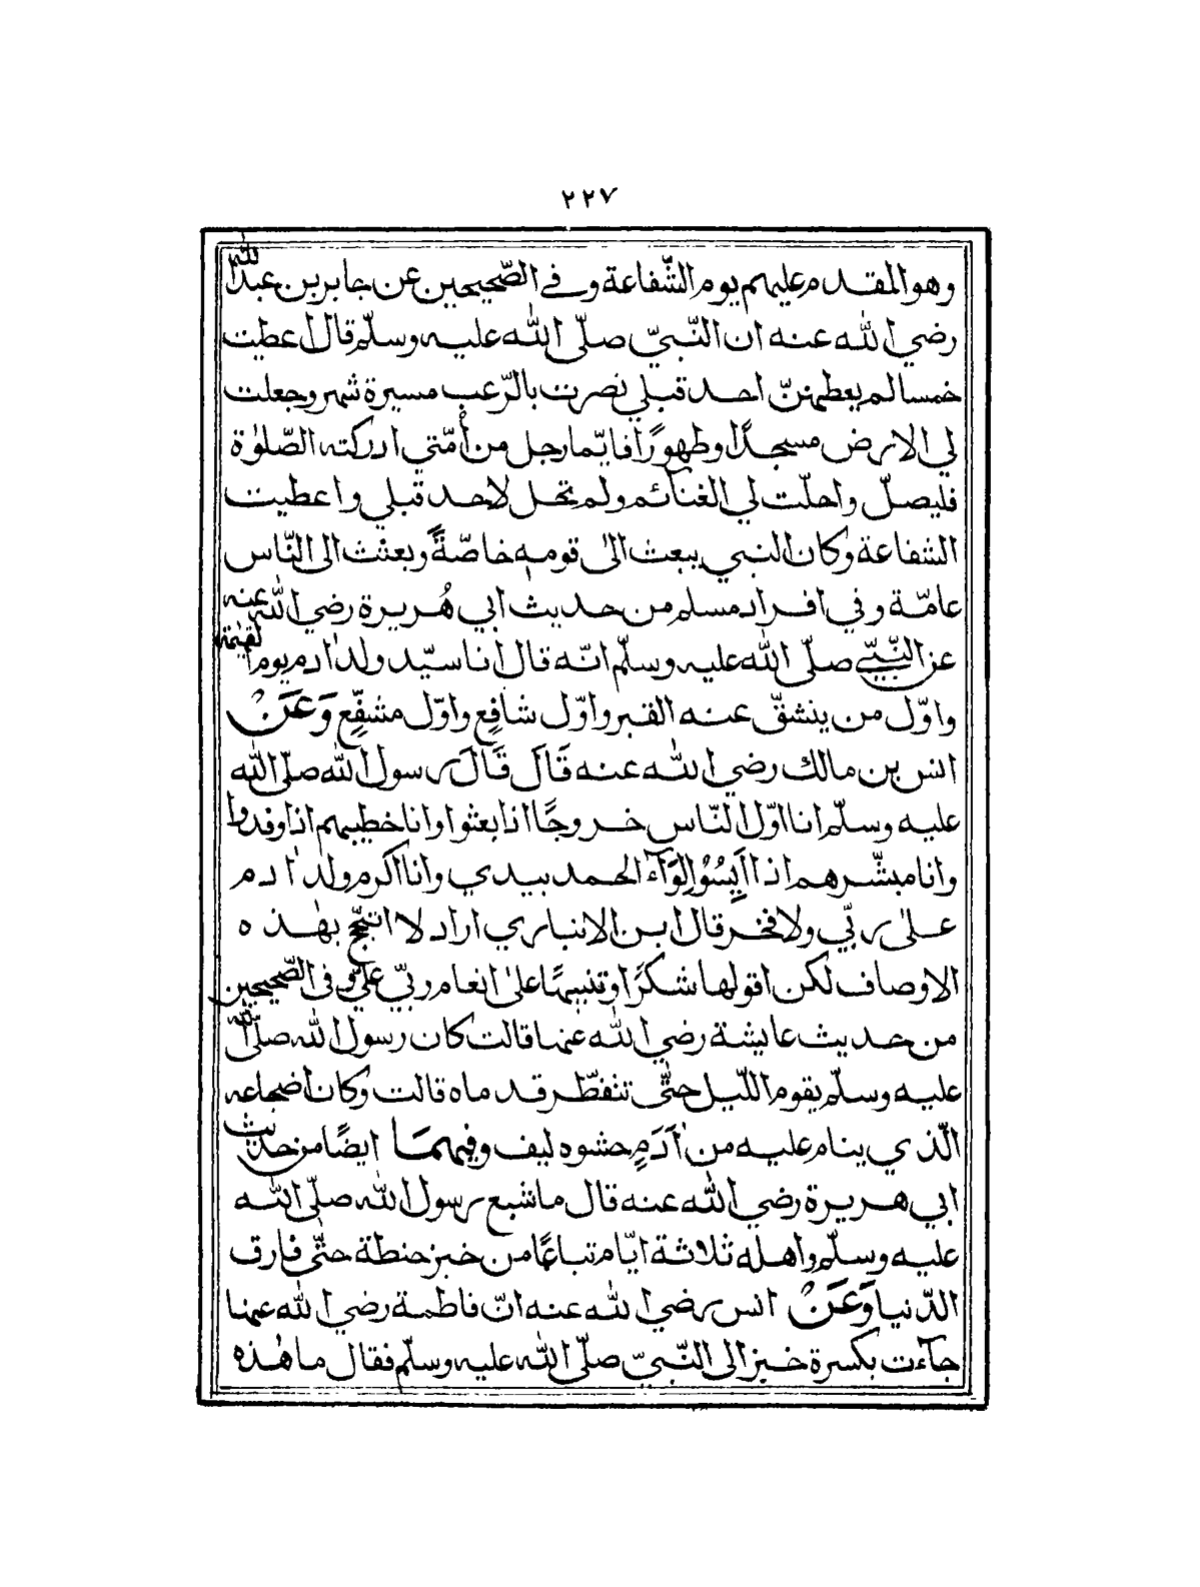 ٢٢٧
وهو المقدم عليهم يوم الشّفاعة وفي الصّحيحين عن جابر بن عبد الله
رضي الله عنه ان النّبيّ صلّى الله عليه وسلّم قال اعطيت
خمسا لم يعطهنّ احد قبلي نصرت بالرّعب مسيرة شهر وجعلت
لي الارض مسجدًا وطهورًا فايّما رجل من أمّتي ادركته الصّلوٰة
فليصلّ واحلّت لي الغنائم ولم تحل لاحد قبلي واعطيت
الشفاعة وكان النبي يبعث الىٰ قومه خاصّةً وبعثت الى النّاس
عامّة وفي افراد مسلم من حديث ابي هُريرة رضي الله عنه
عن النّبيّ صلّى الله عليه وسلّم انّه قال انا سيّد ولد اٰدم يوم القيٰمة
واوّل من ينشقّ عنه القبر واوّل شافِع واوّل مشفّعٍ وَعَنْ
انس بن مالك رضي الله عنه قَالَ قَالَ رسول الله صلّى الله
عليه وسلّم انا اوّل النّاس خروجًا اذا بعثوا وانا خطيبهم اذا وفدوا
وانا مبشّرهم اذا اَيِسُوْا لِوَآءُ الحمد بيدي وانا اكرم ولد اٰدم
علىٰ ربّي ولا فخر قال ابن الانباري اراد لا اتبجّح بهٰذه
الاوصاف لكن اقولها شكرًا وتنبيهًا علىٰ انعام ربّي عليّ وفى الصّحيحين
من حديث عايشة رضي الله عنها قالت كان رسول الله صلّى الله
عليه وسلّم يقوم اللّيل حتّى تتفطّر قدماه قالت وكان اضجاعه
الّذي ينام عليه من اَدَمٍ حشوه ليف وفيهمَا ايضًا من حديث
ابي هريرة رضي الله عنه قال ما شبع رسول الله صلّى الله
عليه وسلّم واهله ثلاثة ايّام تباعًا من خبز حنطة حتّى فارق
الدّنيا وَعَنْ انس رضي الله عنه انّ فاطمة رضي الله عنها
جآءت بكسرة خبز الى النّبيّ صلّى الله عليه وسلّم فقال ما هٰذه